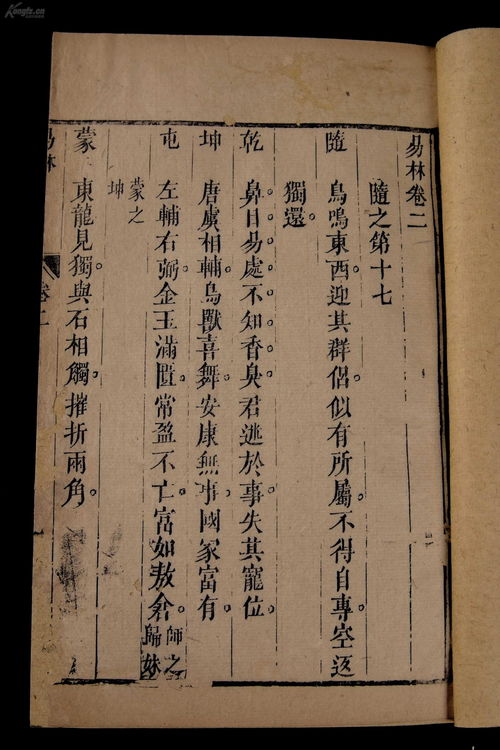 易林卷二
隨之第十七
隨 鳥鳴東西迎其群侶。似有所屬。不得自專。空返
獨還。
乾 鼻目易處。不知香臭。君迷於事。失其寵位
坤 唐虞相輔。鳥獸喜舞。安康無事。國家富有
屯 左輔右弼。金玉滿匱。常盈不亡。富如敖倉。師之歸妹
蒙之坤
蒙 東龍見獨。與石相觸。摧折兩角。
易林
卷二
Kongfz.cn